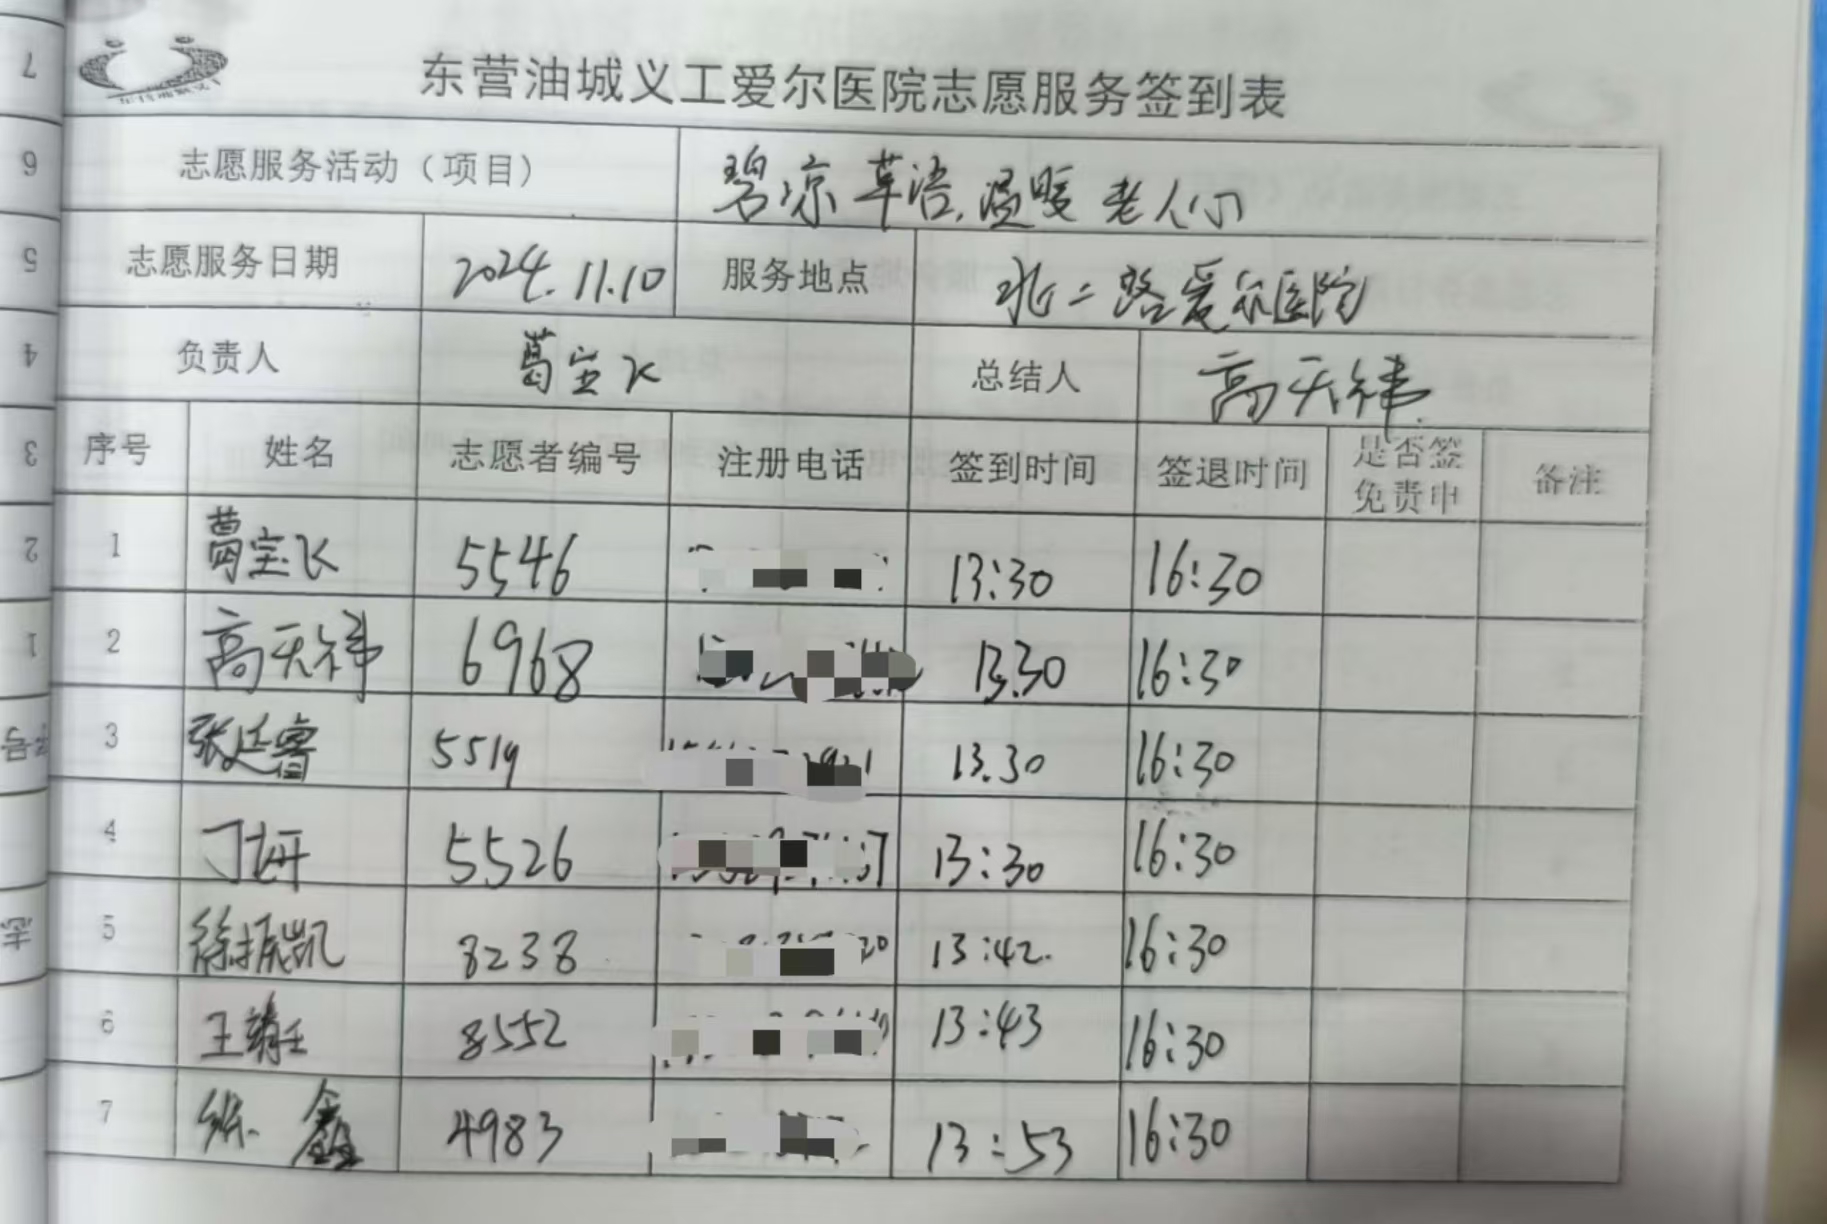 东营油城义工爱尔医院志愿服务签到表
志愿服务活动（项目） 碧凉草洁,温暖老人们
志愿服务日期 2024.11.10 服务地点 北二路爱尔医院
负责人 葛宝飞 总结人 高天祎
序号 姓名 志愿者编号 注册电话 签到时间 签退时间 是否签免责申 备注
1 葛宝飞 5546 13:30 16:30
2 高天祎 6968 13.30 16:30
3 张廷睿 5519 13.30 16:30
4 丁妍 5526 13:30 16:30
5 徐振凯 8238 13:42. 16:30
6 王 8552 13:43 16:30
7 鑫 4983 13:53 16:30
7
6
5
4
3
2
1
序号